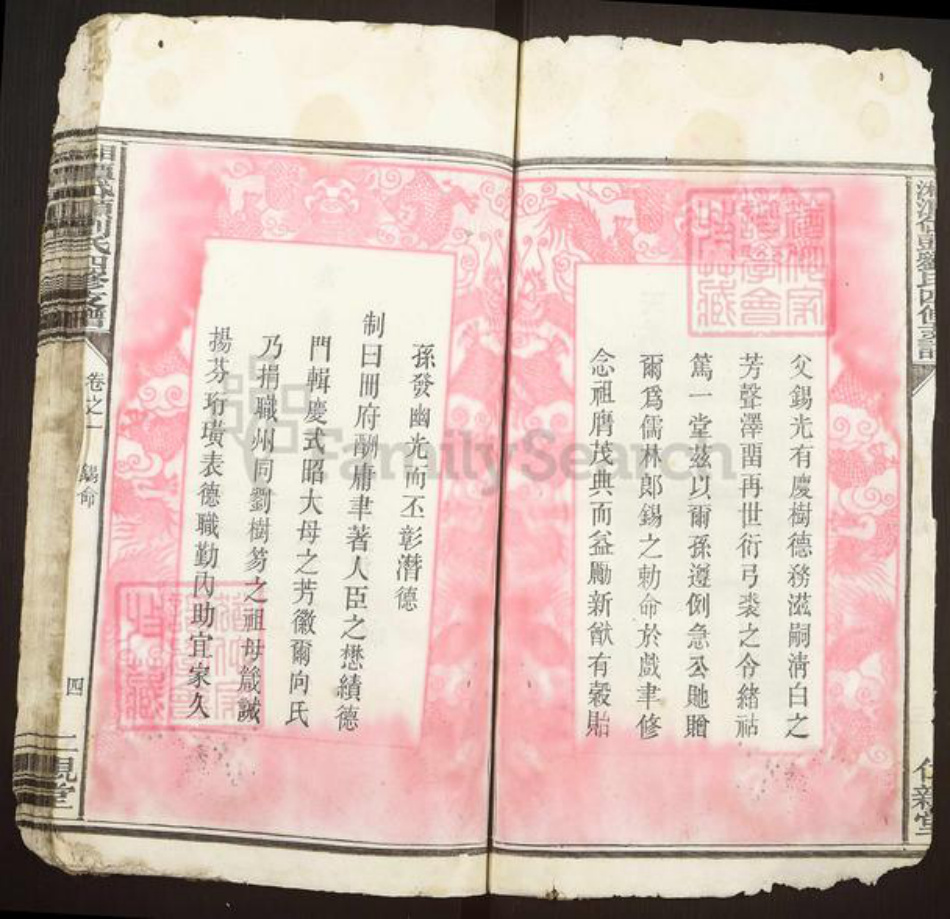 父錫光有慶樹德務滋嗣淸白之
芳聲澤畱再世衍弓裘之令緒祜
篤一堂茲以爾孫遵例急公貤贈
爾爲儒林郎錫之勅命於戲聿修
念祖膺茂典而益勵新猷有穀貽
孫發幽光而丕彰潛德
制曰冊府酬庸聿著人臣之懋績德
門輯慶式昭大母之芳徽爾向氏
乃捐職州同劉樹芴之祖母箴誡
揚芬珩璜表德職勤內助宜家久
劉氏四修支譜
卷之一
錫命
四
FamilySearch